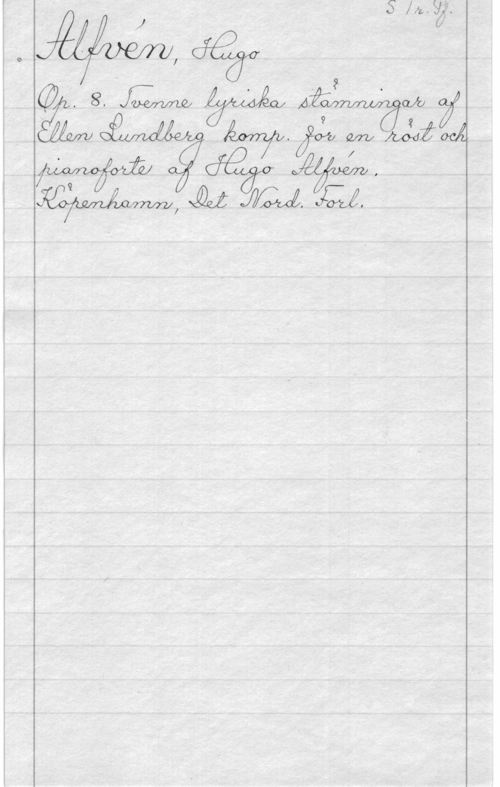 S Tr. Tj.
Alfvén, Hugo
Op. 8. Tvenne lyriska stämningar af
Ellen Lundberg komp. för en röst och
pianoforte af Hugo Alfvén.
Köpenhamn, Det Nord. Forl.